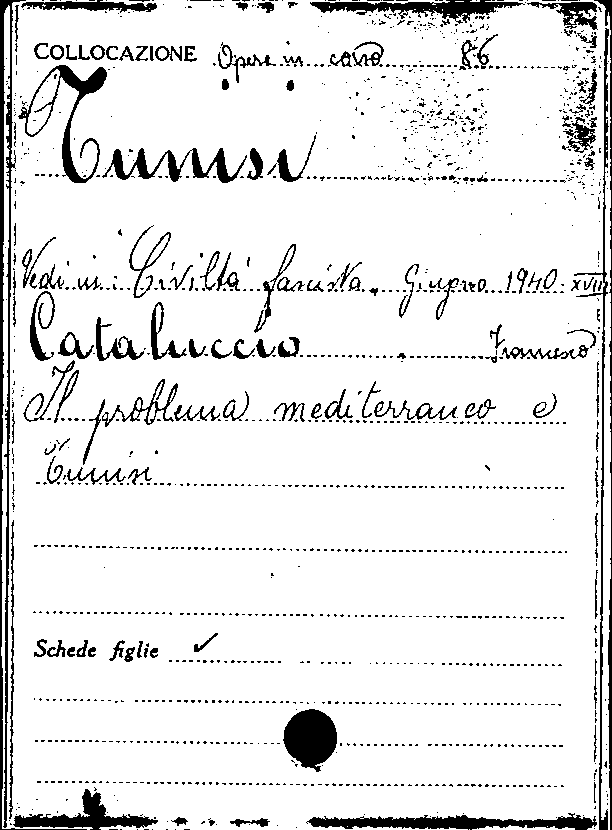 COLLOCAZIONE Opere in corso 86
Tunisi
Vedi in: Civiltà fascista. Giugno 1940. XVIII
Cataluccio Francesco
Il problema mediterraneo e
Tunisi
Schede figlie ✓